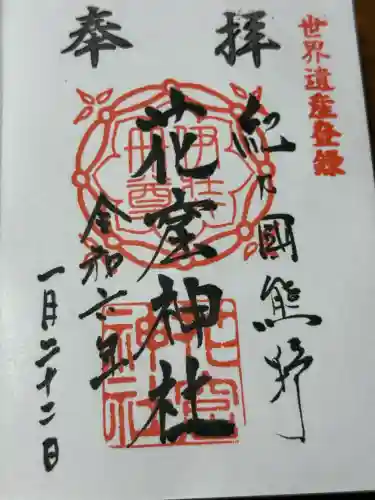 世界遺産登録
奉拝
紀乃國熊野
花窟神社
令和六年
一月二十二日
伊弉冊尊
花窟神社